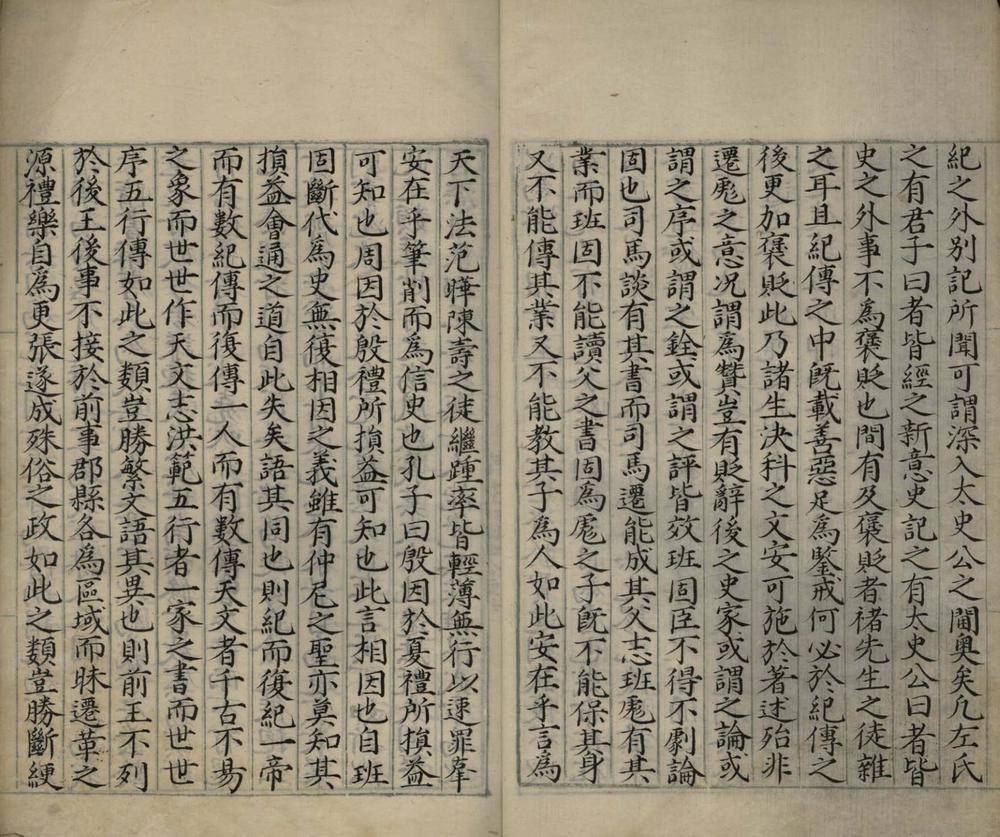 紀之外别記所聞可謂深入太史公之閫奥矣凡左氏
之有君子曰者皆經之新意史記之有太史公曰者皆
史之外事不為褒貶也間有及褒貶者褚先生之徒雜
之耳且紀傳之中既載善惡足為鑒戒何必於紀傳之
後更加褒貶此乃諸生决科之文安可施於著述殆非
遷彪之意况謂為贊豈有貶辭後之史家或謂之論或
謂之序或謂之銓或謂之評皆效班固臣不得不劇論
固也司馬談有其書而司馬遷能成其父志班彪有其
業而班固不能讀父之書固為彪之子既不能保其身
又不能傳其業又不能教其子為人如此安在乎言為
天下法范曄陳壽之徒繼踵率皆輕薄無行以速罪辜
安在乎筆削而為信史也孔子曰殷因於夏禮所損益
可知也周因於殷禮所損益可知也此言相因也自班
固斷代為史無復相因之義雖有仲尼之聖亦莫知其
損益會通之道自此失矣語其同也則紀而復紀一帝
而有數紀傳而復傳一人而有數傳天文者千古不易
之象而世世作天文志洪範五行者一家之書而世世
序五行傳如此之類豈勝繁文語其異也則前王不列
於後王後事不接於前事郡縣各為區域而昧遷革之
源禮樂自為更張遂成殊俗之政如此之類豈勝斷綆